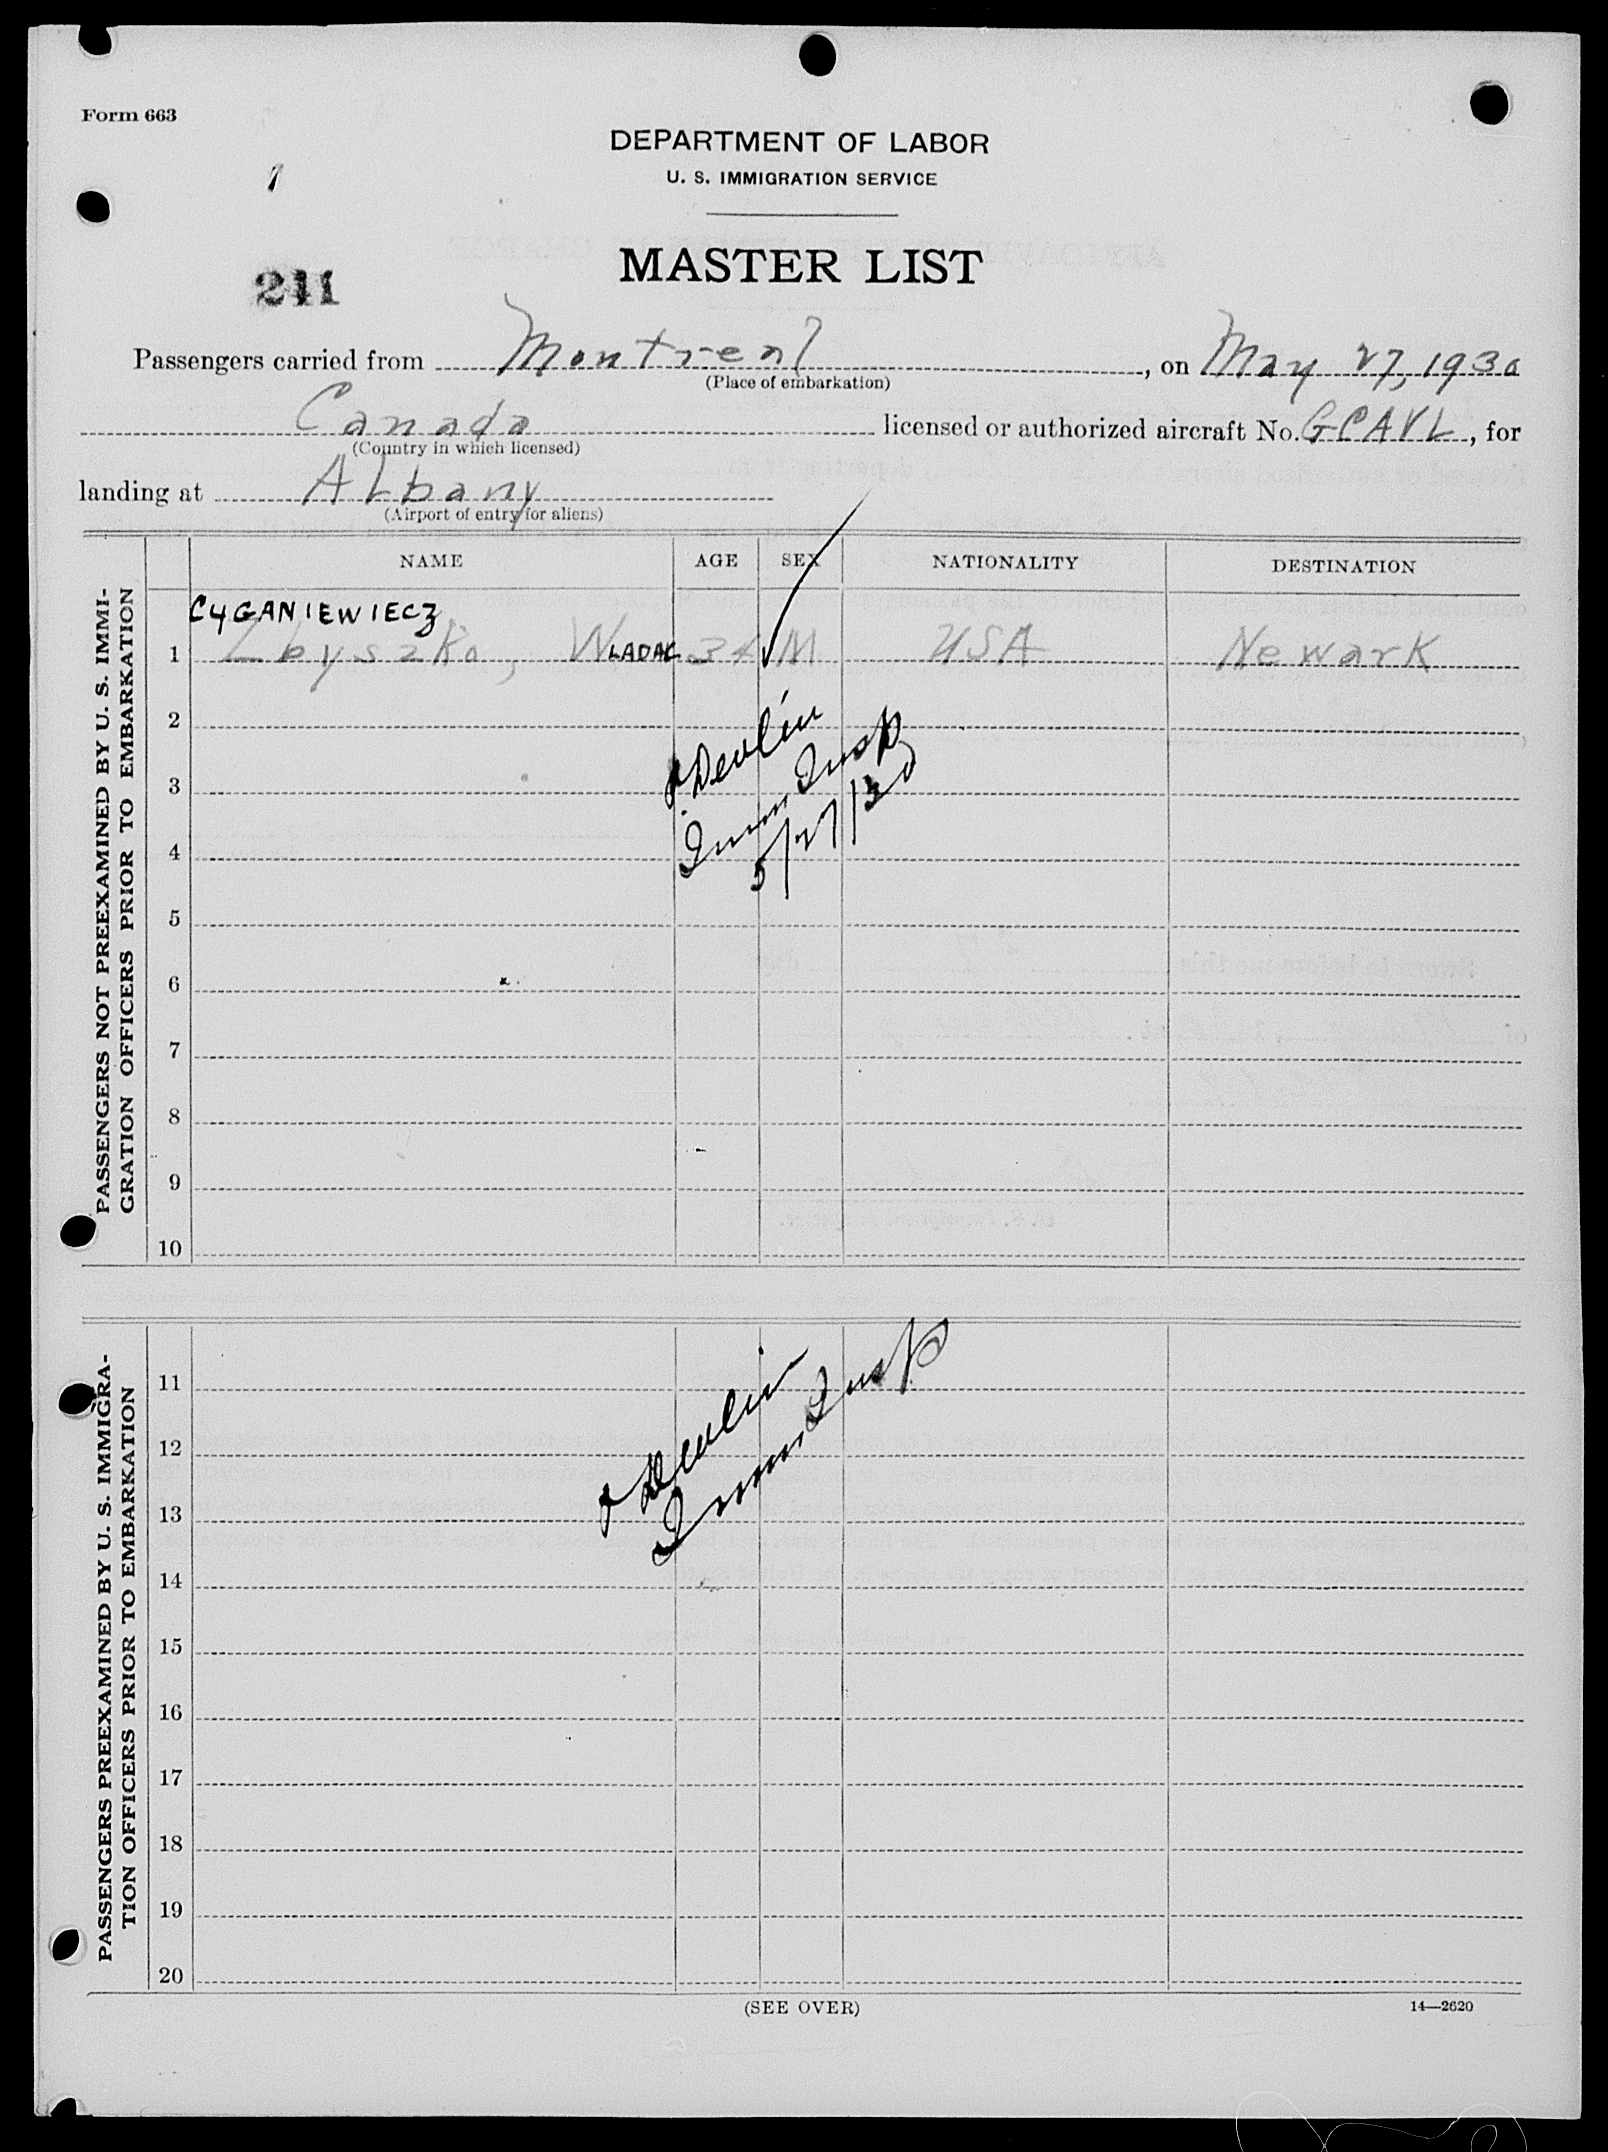 Form 663
DEPARTMENT OF LABOR
U. S. IMMIGRATION SERVICE
1
MASTER LIST
211
Passengers carried from Montreal, on May 27, 1930
(Place of embarkation)
Canada licensed or authorized aircraft No. GCAVL, for
(Country in which licensed)
landing at Albany
(Airport of entry for aliens)
NAME AGE SEX NATIONALITY DESTINATION
PASSENGERS NOT PREEXAMINED BY U. S. IMMI-
GRATION OFFICERS PRIOR TO EMBARKATION
CyGANIEWIECz
1 Zbyszko, WLADAK 34 M USA Newark
2
Devlin
3
Imm Insp
4
5/27/30
5
6
7
8
9
10
PASSENGERS PREEXAMINED BY U. S. IMMIGRA-
TION OFFICERS PRIOR TO EMBARKATION
11
12
Devlin
13
Imm Insp
14
15
16
17
18
19
20
(SEE OVER)
14—2620